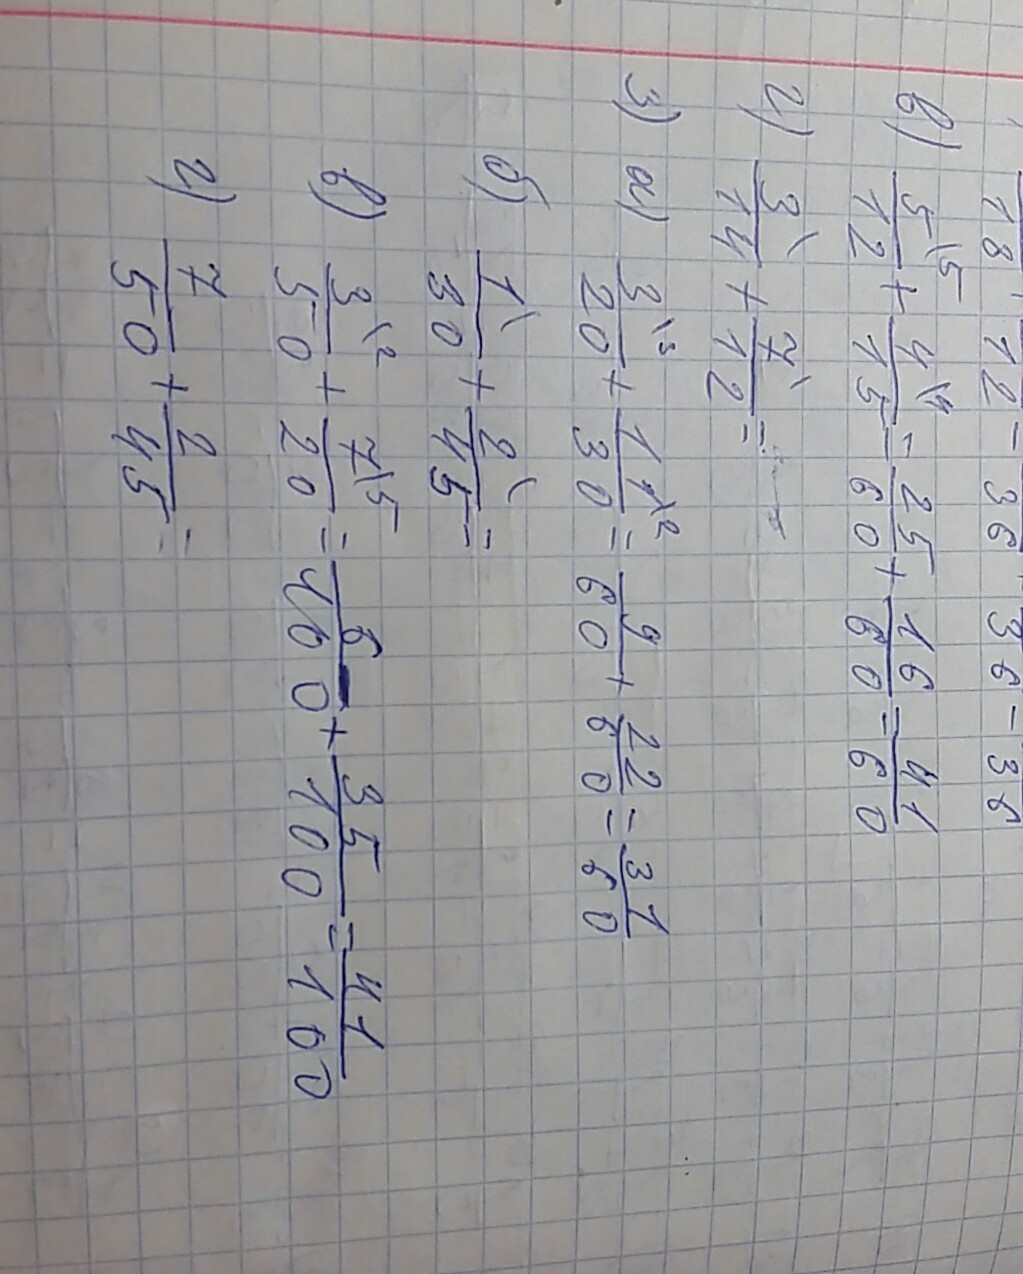 18 12 = 36 36 = 36
в) 5\5/12 + 4\4/15 = 25/60 + 16/60 = 41/60
г) 3\/14 + 7\/12 =
3) а) 3\3/20 + 11\2/30 = 9/60 + 22/60 = 31/60
б) 1\/30 + 2\/45 =
в) 3\2/50 + 7\5/20 = 6/100 + 35/100 = 41/100
г) 7/50 + 2/45 =